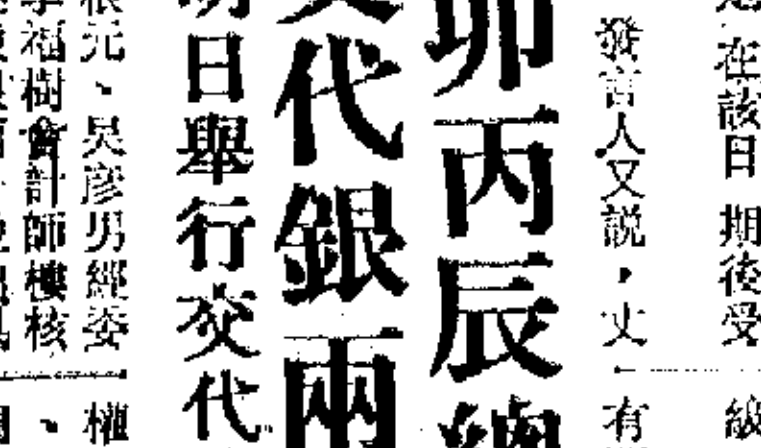 在該日期後受
級
發言人又説，丈
有
卯丙辰總
交代銀兩
明日舉行交代
根元、吳彦男經委
權
李福樹會計師樓核
、